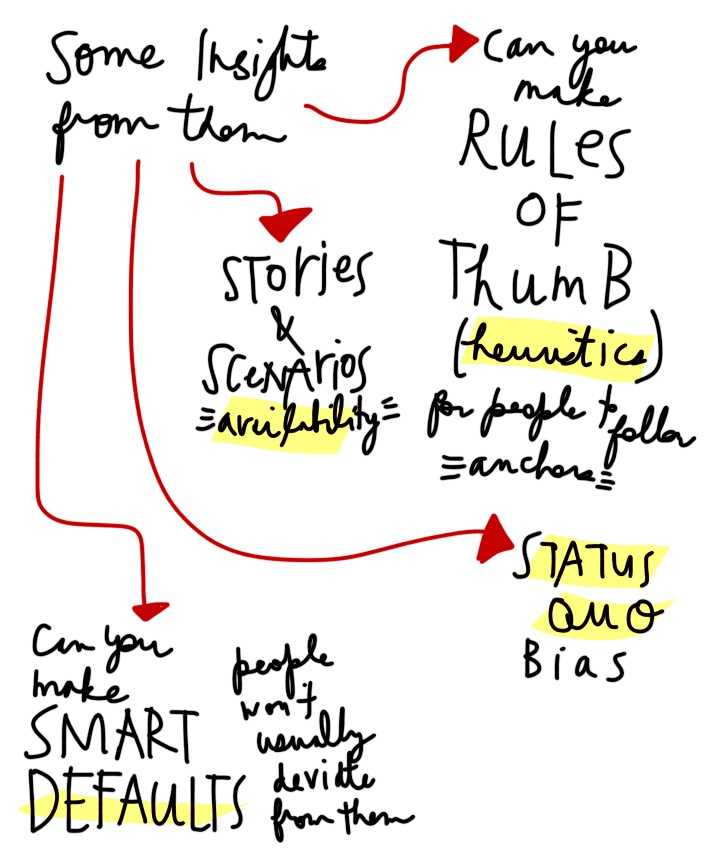 Some Insights
from them
Can you
make
RULES
OF
Thum B
(heuristics)
for people to
follow
anchors
STORIES
&
SCENARIOS
availability
STATUS
QUO
Bias
Can you
make
SMART
DEFAULTS
people
won't
usually
deviate
from them